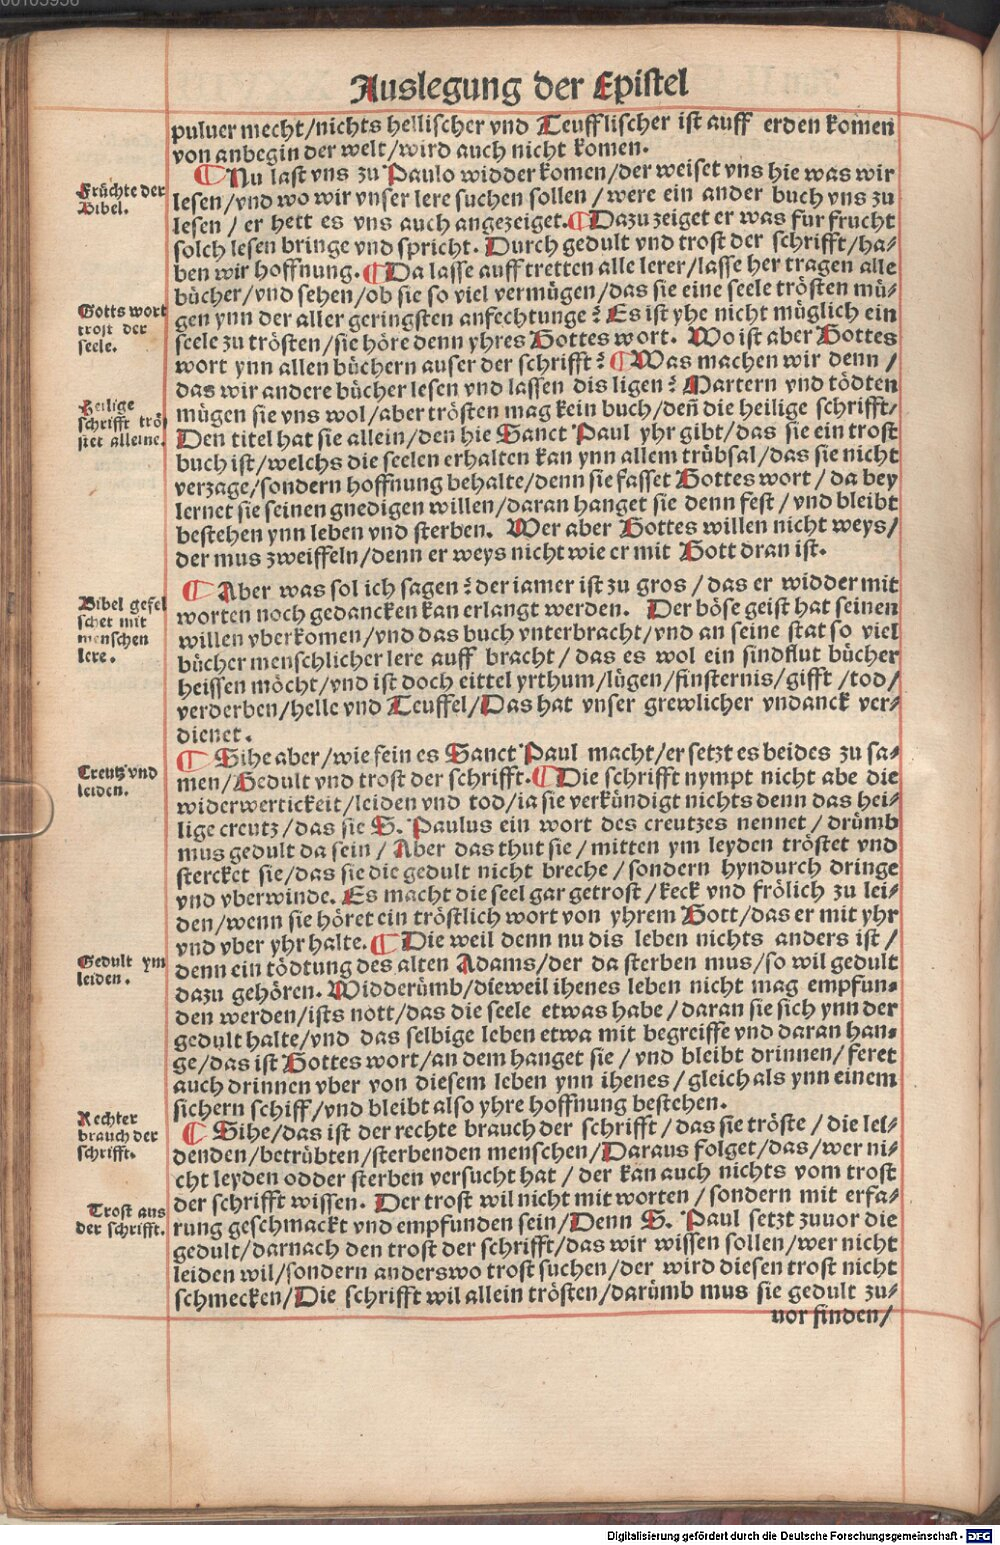 Auslegung der Epistel
puluer mecht/nichts hellischer vnd Teufflischer ist auff erden komen
von anbegin der welt/wird auch nicht komen.
Früchte der
Bibel.
¶ Nu last vns zu Paulo widder komen/der weiset vns hie was wir
lesen/vnd wo wir vnser lere suchen sollen/were ein ander buch vns zu
lesen/er hett es vns auch angezeiget. ¶ Dazu zeiget er was fur frucht
solch lesen bringe vnd spricht. Durch gedult vnd trost der schrifft/ha⸗
ben wir hoffnung. ¶ Da lasse auff tretten alle lerer/lasse her tragen alle
bücher/vnd sehen/ob sie so viel vermügen/das sie eine seele trösten mü⸗
Gotts wort
trost der
seele.
gen ynn der aller geringsten anfechtunge? Es ist yhe nicht müglich ein
seele zu trösten/sie höre denn yhres Gottes wort. Wo ist aber Gottes
wort ynn allen büchern auser der schrifft? ¶ Was machen wir denn/
das wir andere bücher lesen vnd lassen dis ligen? Martern vnd tödten
Heilige
schrifft trö
stet alleine.
mügen sie vns wol/aber trösten mag kein buch/deñ die heilige schrifft/
Den titel hat sie allein/den hie Sanct Paul yhr gibt/das sie ein trost
buch ist/welchs die seelen erhalten kan ynn allem trübsal/das sie nicht
verzage/sondern hoffnung behalte/denn sie fasset Gottes wort/da bey
lernet sie seinen gnedigen willen/daran hanget sie denn fest/vnd bleibt
bestehen ynn leben vnd sterben. Wer aber Gottes willen nicht weys/
der mus zweiffeln/denn er weys nicht wie er mit Gott dran ist.
Bibel gefel
schet mit
menschen
lere.
¶ Aber was sol ich sagen? der iamer ist zu gros/das er widder mit
worten noch gedancken kan erlangt werden. Der böse geist hat seinen
willen vberkomen/vnd das buch vnterbracht/vnd an seine stat so viel
bücher menschlicher lere auff bracht/das es wol ein sindflut bücher
heissen möcht/vnd ist doch eittel yrthum/lügen/finsternis/gifft/tod/
verderben/helle vnd Teuffel/Das hat vnser grewlicher vndanck ver⸗
dienet.
Creutz vnd
leiden.
¶ Sihe aber/wie fein es Sanct Paul macht/er setzt es beides zu sa⸗
men/Gedult vnd trost der schrifft. ¶ Die schrifft nympt nicht abe die
widerwertickeit/leiden vnd tod/ia sie verkündigt nichts denn das hei⸗
lige creutz/das sie S. Paulus ein wort des creutzes nennet/drümb
mus gedult da sein/Aber das thut sie/mitten ym leyden tröstet vnd
stercket sie/das sie die gedult nicht breche/sondern hyndurch dringe
vnd vberwinde. Es macht die seel gar getrost/keck vnd frölich zu lei⸗
den/wenn sie höret ein tröstlich wort von yhrem Gott/das er mit yhr
vnd vber yhr halte. ¶ Die weil denn nu dis leben nichts anders ist/
Gedult ym
leiden.
denn ein tödtung des alten Adams/der da sterben mus/so wil gedult
dazu gehören. Widderümb/dieweil ihenes leben nicht mag empfun⸗
den werden/ists nott/das die seele etwas habe/daran sie sich ynn der
gedult halte/vnd das selbige leben etwa mit begreiffe vnd daran han⸗
ge/das ist Gottes wort/an dem hanget sie/vnd bleibt drinnen/feret
auch drinnen vber von diesem leben ynn ihenes/gleich als ynn einem
sichern schiff/vnd bleibt also yhre hoffnung bestehen.
Rechter
brauch der
schrifft.
¶ Sihe/das ist der rechte brauch der schrifft/das sie tröste/die lei⸗
denden/betrübten/sterbenden menschen/Daraus folget/das/wer ni⸗
cht leyden odder sterben versucht hat/der kan auch nichts vom trost
Trost aus
der schrifft.
der schrifft wissen. Der trost wil nicht mit worten/sondern mit erfa⸗
rung geschmackt vnd empfunden sein/Denn S. Paul setzt zuuor die
gedult/darnach den trost der schrifft/das wir wissen sollen/wer nicht
leiden wil/sondern anderswo trost suchen/der wird diesen trost nicht
schmecken/Die schrifft wil allein trösten/darümb mus sie gedult zu⸗
uor finden/
Digitalisierung gefördert durch die Deutsche Forschungsgemeinschaft - DFG